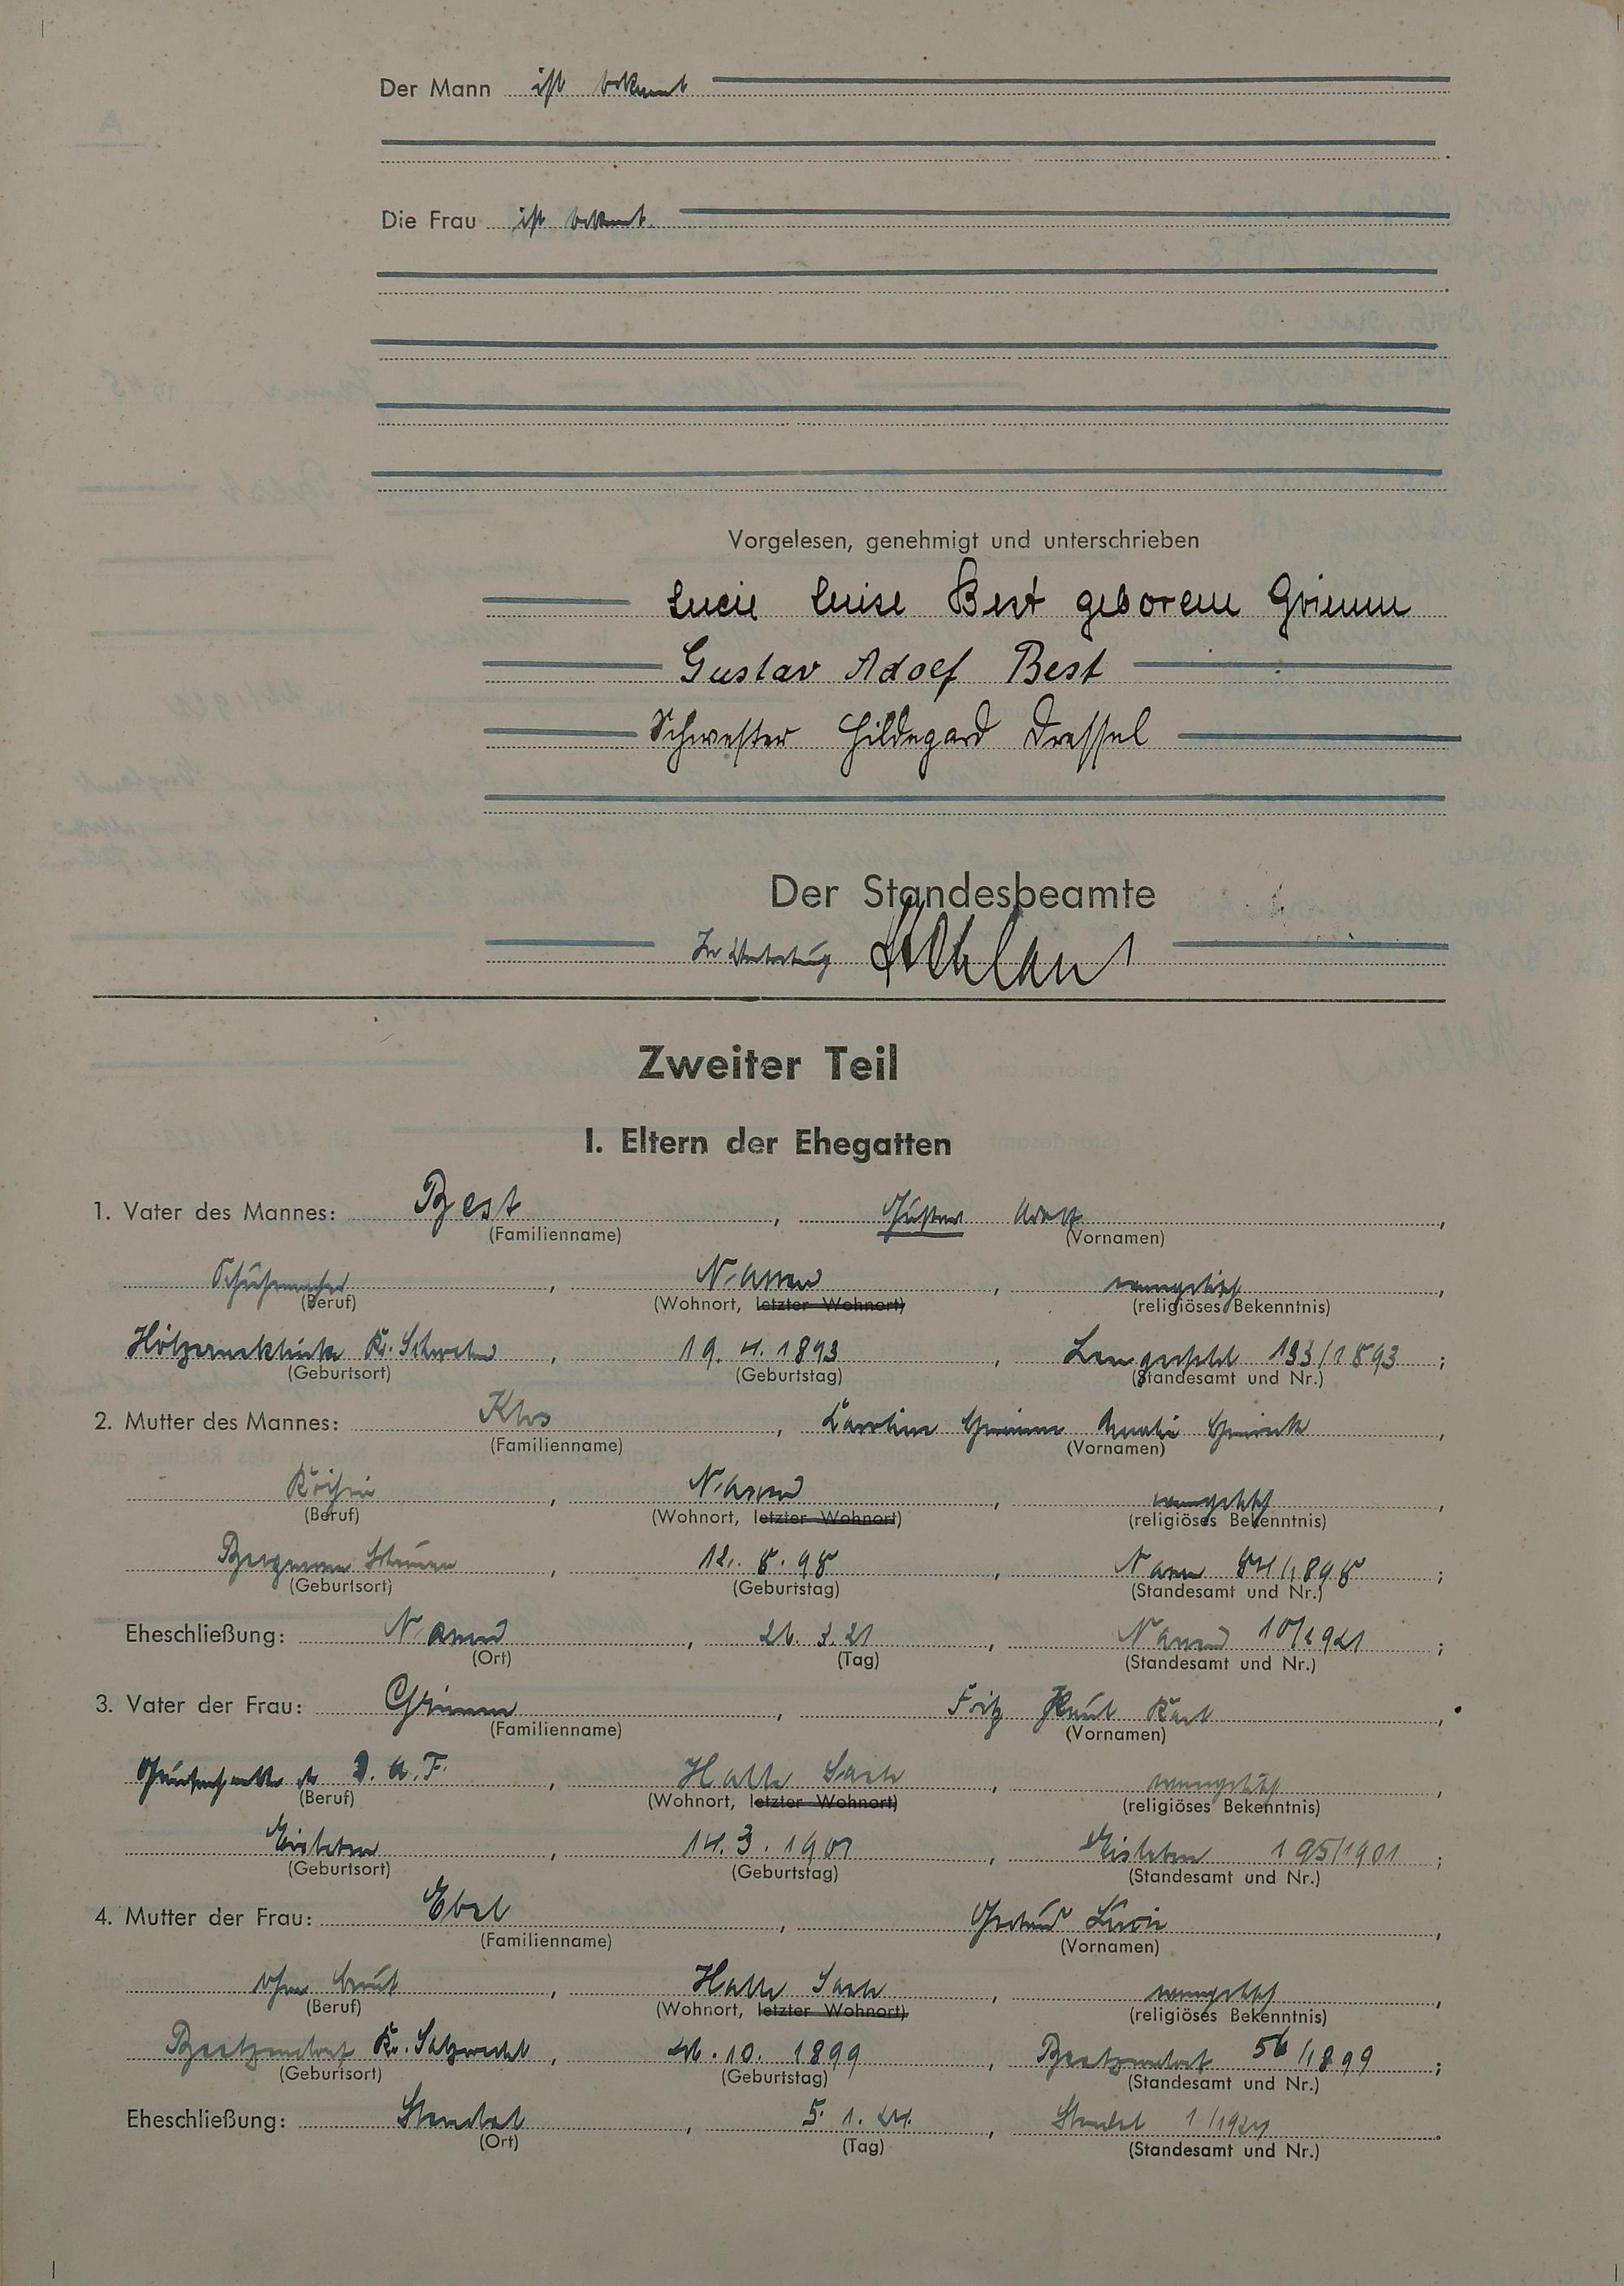 Der Mann ist bekannt
Die Frau ist bekannt.
Vorgelesen, genehmigt und unterschrieben
Lucie Luise Best geborene Grimm
Gustav Adolf Best
Schwester Hildegard Dressel
Der Standesbeamte
In Vertretung
Zweiter Teil
I. Eltern der Ehegatten
1. Vater des Mannes: Best, Gustav Adolf,
(Familienname) (Vornamen)
Schuhmacher, Nauen, evangelisch,
(Beruf) (Wohnort, letzter Wohnort) (religiöses Bekenntnis)
Kr. Schwelm, 19. 4. 1893, Langerfeld 133/1893;
(Geburtsort) (Geburtstag) (Standesamt und Nr.)
2. Mutter des Mannes:
(Familienname) (Vornamen)
Köchin, Nauen, evangelisch,
(Beruf) (Wohnort, letzter Wohnort) (religiöses Bekenntnis)
12. 8. 98, Nauen 84/1898;
(Geburtsort) (Geburtstag) (Standesamt und Nr.)
Eheschließung: Nauen, 26. 3. 21, Nauen 10/1921;
(Ort) (Tag) (Standesamt und Nr.)
3. Vater der Frau: Grimm, Fritz Karl
(Familienname) (Vornamen)
D. A. F., Halle Saale, evangelisch,
(Beruf) (Wohnort, letzter Wohnort) (religiöses Bekenntnis)
Eisleben, 14. 3. 1901, Eisleben 195/1901;
(Geburtsort) (Geburtstag) (Standesamt und Nr.)
4. Mutter der Frau: Ebel, Gertrud Lucie,
(Familienname) (Vornamen)
ohne Beruf, Halle Saale, evangelisch,
(Beruf) (Wohnort, letzter Wohnort) (religiöses Bekenntnis)
Beetzendorf Kr. Salzwedel, 10. 1899, Beetzendorf 56/1899;
(Geburtsort) (Geburtstag) (Standesamt und Nr.)
Eheschließung: Stendal, 5. 1. 24, Stendal 1/1924.
(Ort) (Tag) (Standesamt und Nr.)